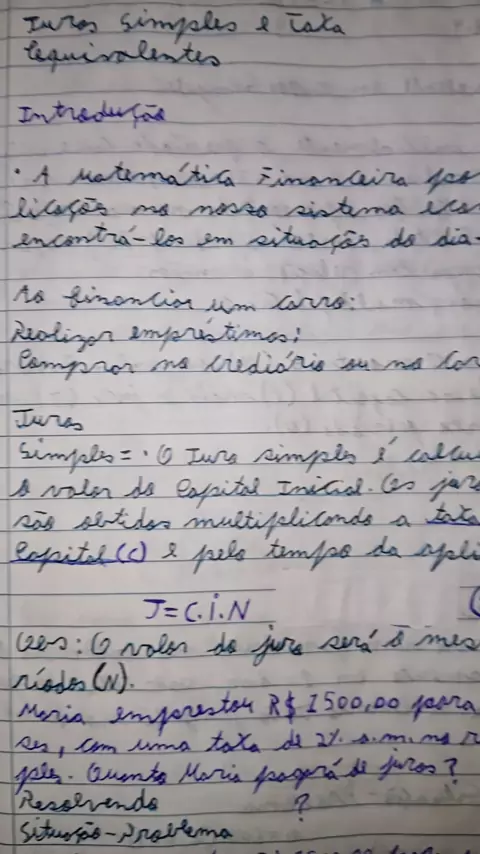 Juros Simples e Taxa
Equivalentes
Introdução
• A Matemática Financeira po
licações no nosso sistema eco
encontrá-los em situações do dia-
Ao financiar um carro:
Realizar empréstimos:
Comprar no crediário ou no car
Juros
Simples = • O Juro simples é calcu
o valor do Capital Inicial. Os jur
são obtidos multiplicando a taxa
Capital (C) e pelo tempo da apli
J = C.i.N (
Obs: O valor do juro será o mes
ríodos (N).
Maria emprestou R$ 1500,00 para
ses, com uma taxa de 2% a.m. no r
ples. Quanto Maria pagará de juros?
Resolvendo ?
Situação-Problema